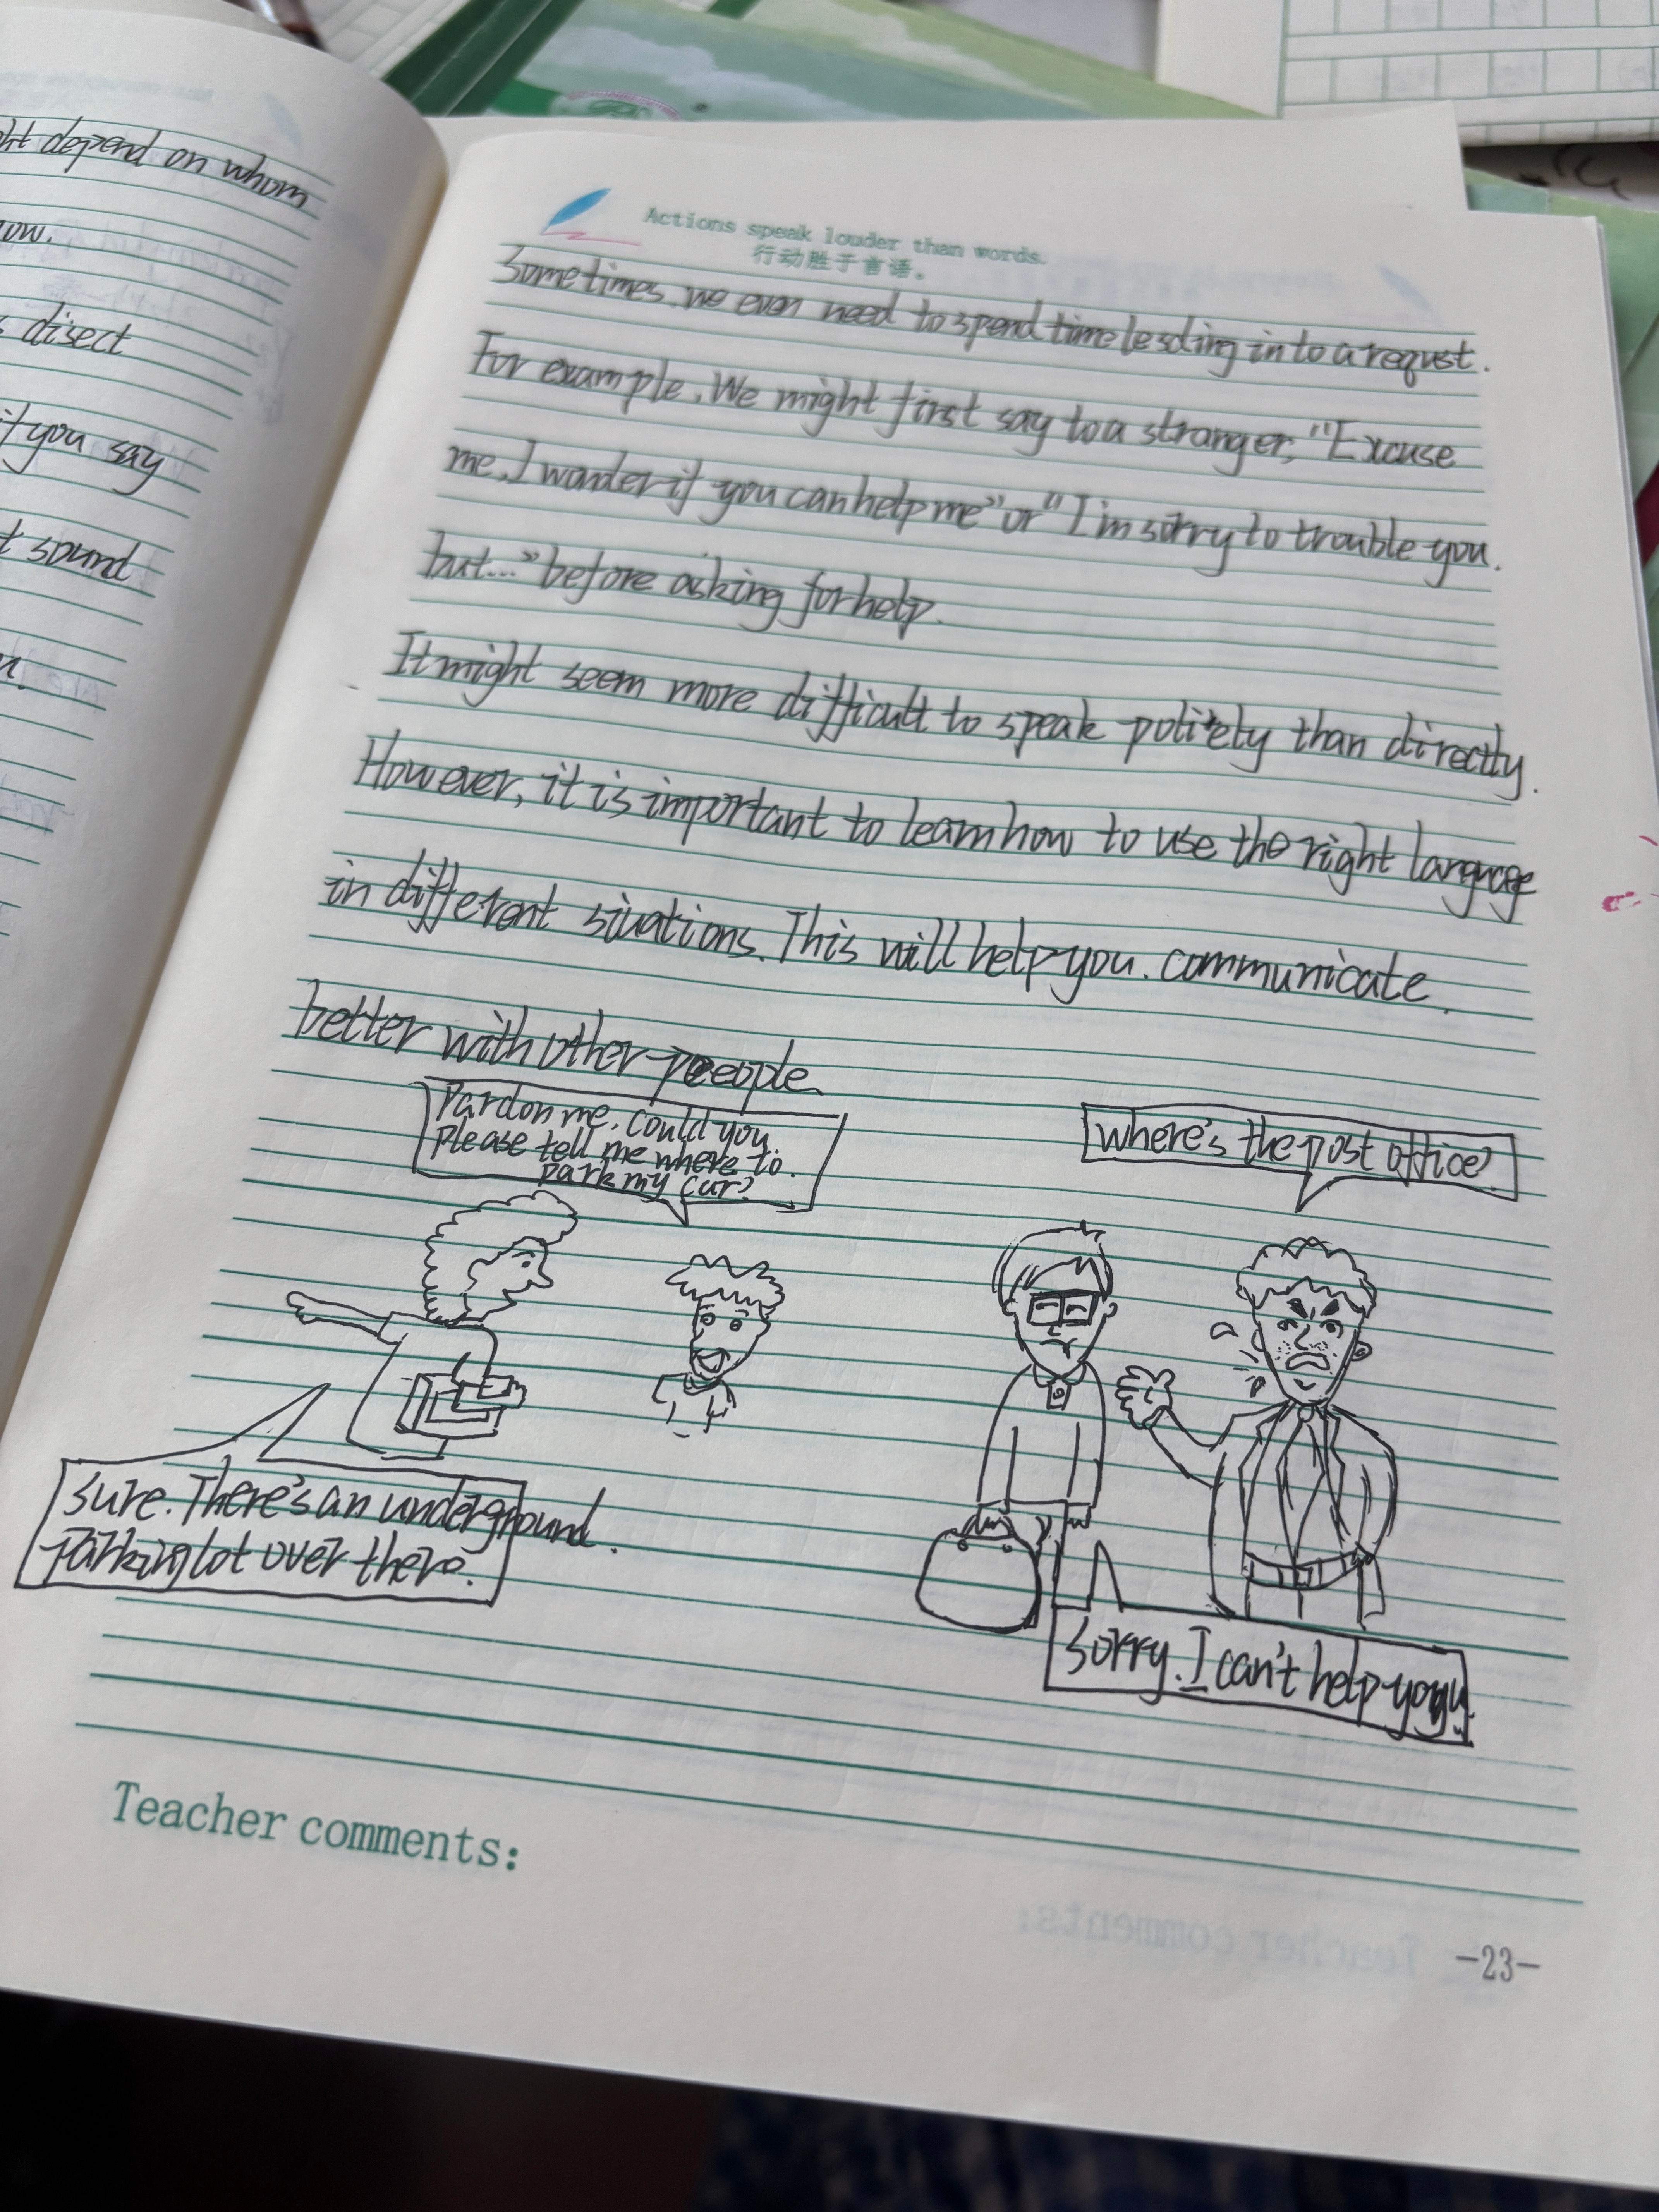 ht depend on whom
ow.
s disect
if you say
t sound
Actions speak louder than words.
行动胜于言语。
Sometimes, we even need to spend time lesding in to a requst.
For example, We might first say to a stranger, "Excuse
me, I wonder if you can help me" or "I'm sorry to trouble you.
but..." before asking for help.
It might seem more difficult to speak politely than directly.
However, it is important to learn how to use the right language
in different siuations. This will help you. communicate.
better with other peeople.
Pardon me, could you
please tell me where to.
park my car?
where's the post office?
Sure. There's an underground.
parking lot over there.
Sorry. I can't help you
Teacher comments:
-23-